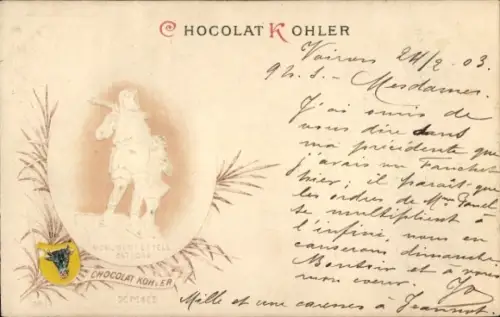 CHOCOLAT KOHLER
Voiron 24/2 03
9h. s. - Mesdames
J'ai omis de
vous dire dans
ma précédente que
j'avais vu Fanchet
hier; il paraît que
les ordres de Mme
se multiplient à
l'infini, nous en
causerons dimanche.
Bonsoir et à vous
mon coeur.
Mille et une caresses à Jeannot.
MONUMENT DE TELL
CHOCOLAT KOHLER